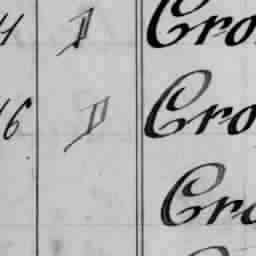 4 D Cro
16 D Cro
Cro